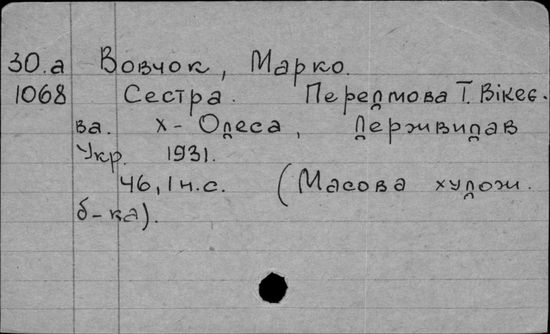 30.а Вовчок, Марко.
1068 Сестра. Передмова Т. Вікеє-
ва. Х-Одеса, Держвидав
Укр. 1931.
46, 1 н.с. (Масова худож.
б-ка).